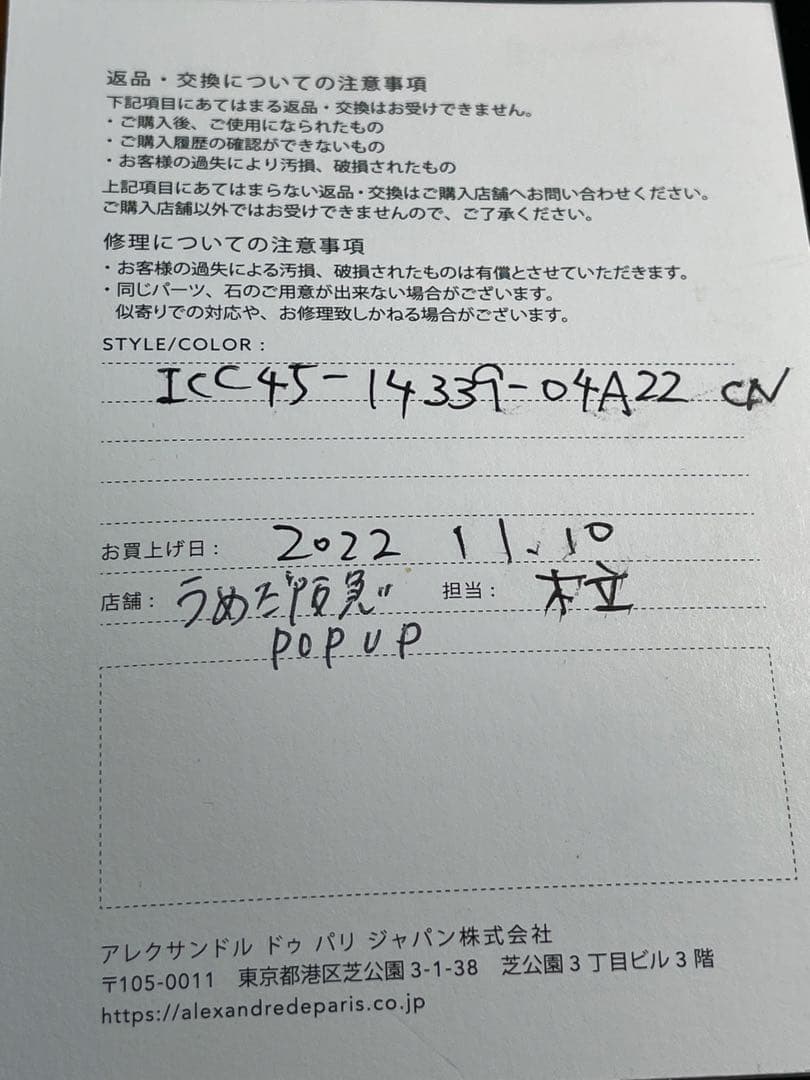 返品・交換についての注意事項
下記項目にあてはまる返品・交換はお受けできません。
・ご購入後、ご使用になられたもの
・ご購入履歴の確認ができないもの
・お客様の過失により汚損、破損されたもの
上記項目にあてはまらない返品・交換はご購入店舗へお問い合わせください。
ご購入店舗以外ではお受けできませんので、ご了承ください。
修理についての注意事項
・お客様の過失による汚損、破損されたものは有償とさせていただきます。
・同じパーツ、石のご用意が出来ない場合がございます。
似寄りでの対応や、お修理致しかねる場合がございます。
STYLE/COLOR :
ICC45-14339-04A22 CN
お買上げ日 : 2022 11.10
店舗 : うめだ阪急 担当 : 木立
POPUP
アレクサンドル ドゥ パリ ジャパン株式会社
〒105-0011 東京都港区芝公園3-1-38 芝公園3丁目ビル3階
https://alexandredeparis.co.jp